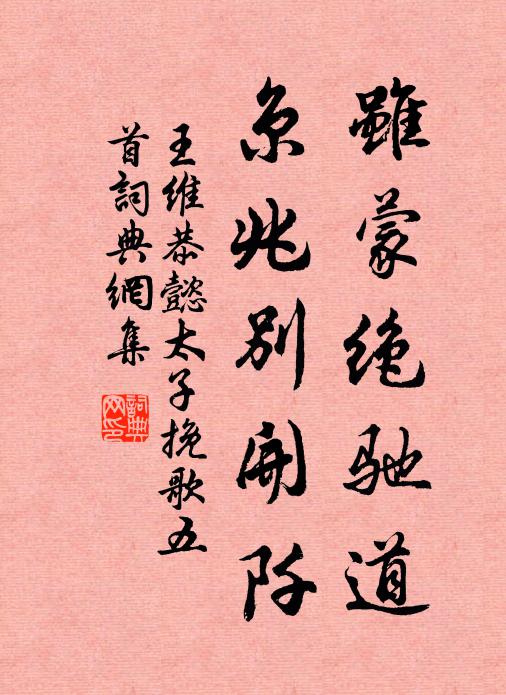 雖蒙絶馳道
京兆別開阡
王維恭懿太子挽歌五
首詞典網集
詞典
网印